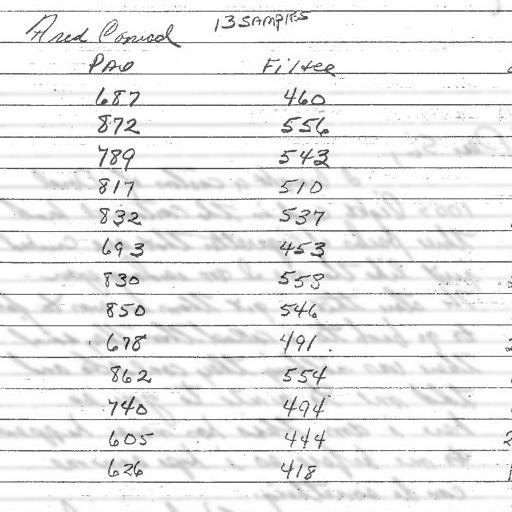 Fred Conrad 13 SAMPLES
PAD Filter
687 460
872 556
789 543
817 510
832 537
693 453
830 558
850 546
678 491.
862 554
740 494
605 444
626 418